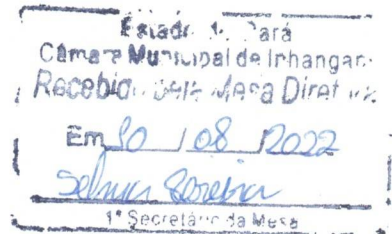 Estado do Pará
Câmara Municipal de Inhangapi
Recebido pela Mesa Diretora
Em 10 / 08 / 2022
1ª Secretária da Mesa